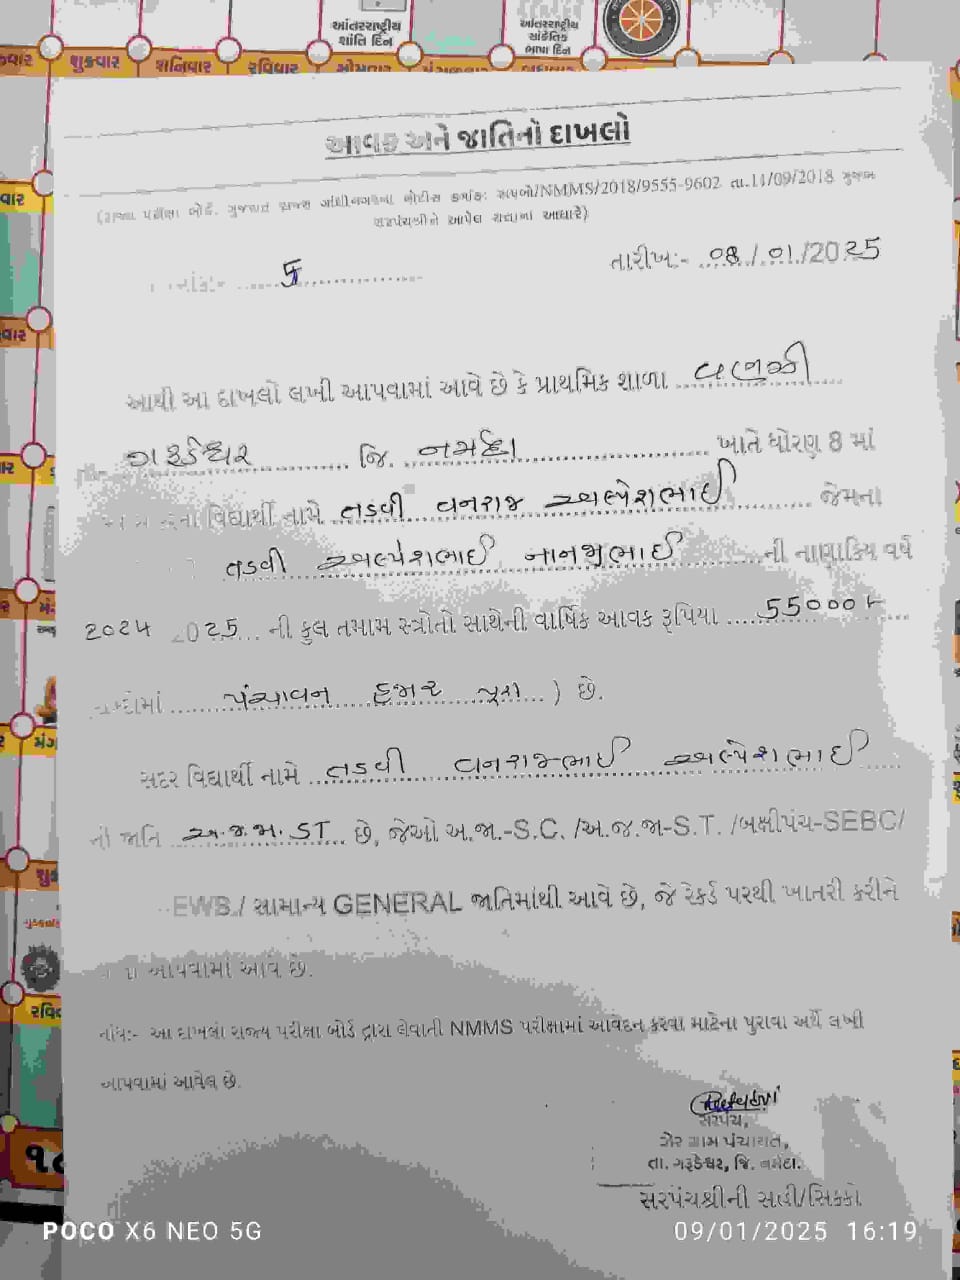 આંતરરાષ્ટ્રીય
શાંતિ દિન
આંતરરાષ્ટ્રીય
સાંકેતિક
ભાષા દિન
શુક્રવાર શનિવાર રવિવાર સોમવાર મંગળવાર બુધવાર
આવક અને જાતિનો દાખલો
(રાજ્ય પરીક્ષા બોર્ડ, ગુજરાત રાજ્ય ગાંધીનગરના નોટીસ ક્રમાંક: રાપબો/NMMS/2018/9555-9602 તા.11/09/2018 મુજબ
સરપંચશ્રીને આપેલ સત્તાના આધારે)
તારીખ:- 08/01/2025
5
આથી આ દાખલો લખી આપવામાં આવે છે કે પ્રાથમિક શાળા
ગરૂડેશ્વર જિ. નર્મદા ખાતે ધોરણ 8 માં
વિદ્યાર્થી નામે તડવી વનરાજ અલ્પેશભાઈ જેમના
તડવી અલ્પેશભાઈ નાનજીભાઈ ની નાણાકિય વર્ષ
2024 2025 ની કુલ તમામ સ્ત્રોતો સાથેની વાર્ષિક આવક રૂપિયા 55000
પંચાવન હજાર પુરા ) છે.
સદર વિદ્યાર્થી નામે તડવી વનરાજભાઈ અલ્પેશભાઈ
ની જાતિ અ.જ.જા. ST છે, જેઓ અ.જા.-S.C. /અ.જ.જા-S.T. /બક્ષીપંચ-SEBC/
EWS / સામાન્ય GENERAL જાતિમાંથી આવે છે, જે રેકર્ડ પરથી ખાતરી કરીને
આપવામાં આવે છે.
નોંધ:- આ દાખલો રાજ્ય પરીક્ષા બોર્ડ દ્વારા લેવાતી NMMS પરીક્ષામાં આવેદન કરવા માટેના પુરાવા અર્થે લખી
આપવામાં આવેલ છે.
સરપંચ,
ગ્રામ પંચાયત,
તા. ગરૂડેશ્વર, જિ. નર્મદા.
સરપંચશ્રીની સહી/સિક્કો
POCO X6 NEO 5G
09/01/2025 16:19